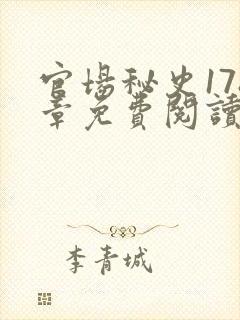 官场秘史17
章免費閱讀
李青城